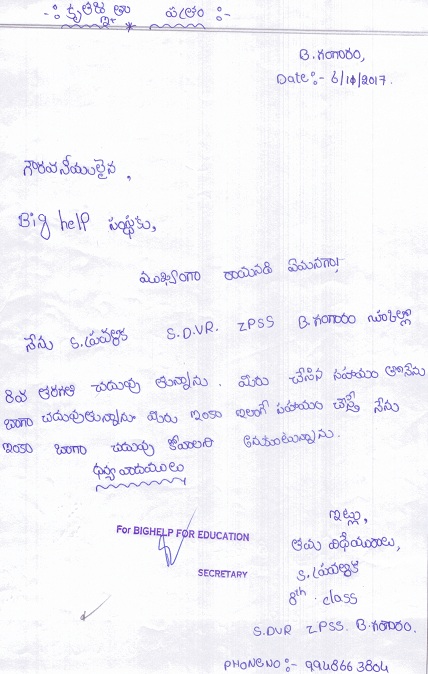 -: కృతజ్ఞతా పత్రం :-
B. గంగారం,
Date :- 6/10/2017.
గౌరవనీయులైన,
Big help సంస్థకు,
ముఖ్యంగా రాయునది ఏమనగా!
నేను S. ప్రవళ్లిక S.D.VR. ZPSS B. గంగారం స్కూల్లో
8వ తరగతి చదువు తున్నాను. మీరు చేసిన సహాయం తో నేను
బాగా చదువుతున్నాను మీరు ఇంకా ఇలాగే సహాయం చేస్తే నేను
ఇంకా బాగా చదువు కోవాలని అనుకుంటున్నాను.
ధన్యవాదములు
ఇట్లు,
తమ విధేయురాలు,
S. ప్రవళ్లిక
8th. class
S.DVR ZPSS. B. గంగారం.
PHONE NO :- 9948663804
For BIGHELP FOR EDUCATION
SECRETARY